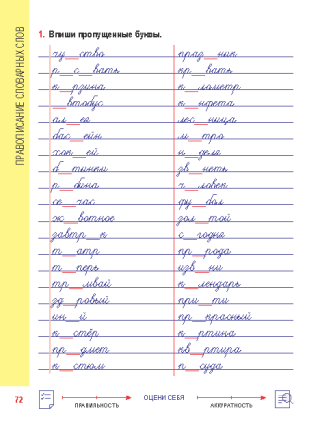 ПРАВОПИСАНИЕ СЛОВАРНЫХ СЛОВ
1. Впиши пропущенные буквы.
чу__ство праз__ник
р__с__вать пр__вать
к__рзина к__лометр
__втобус к__нфета
ал__ея лес__ница
бас__ейн м__тро
хок__ей н__деля
б__тинки зв__неть
р__бина ч__ловек
се__час фу__бол
ж__вотное зол__той
завтр__к с__годня
т__атр пр__рода
т__перь изв__ни
тр__мвай к__лендарь
зд__ровый при__ти
ин__й пр__красный
к__стёр к__ртина
пр__дмет кв__ртира
к__стюм п__суда
72
ПРАВИЛЬНОСТЬ
ОЦЕНИ СЕБЯ
АККУРАТНОСТЬ